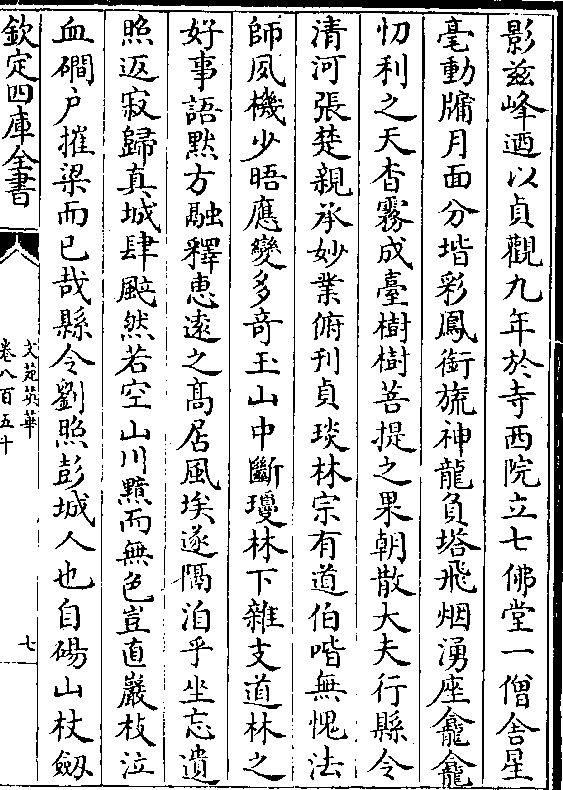 影兹峰迺以貞觀九年於寺西院立七佛堂一僧舎星
毫動牖月面分堦彩鳳銜旒神龍負塔飛烟湧座龕龕
忉利之天杳霧成臺樹樹菩提之果朝散大夫行縣令
清河張楚親承妙業俯刊貞琰林宗有道伯喈無愧法
師夙機少晤應變多竒玉山中斷瓊林下雜支道林之
好事語黙方融釋恵逺之髙居風埃遂隔洎乎坐忘遺
照返寂歸真城肆颼然若空山川黯而無色豈直巖枝泣
血磵户摧梁而已哉縣令劉照彭城人也自碭山杖劔
欽定四庫全書
文苑英華
卷八百五十
七